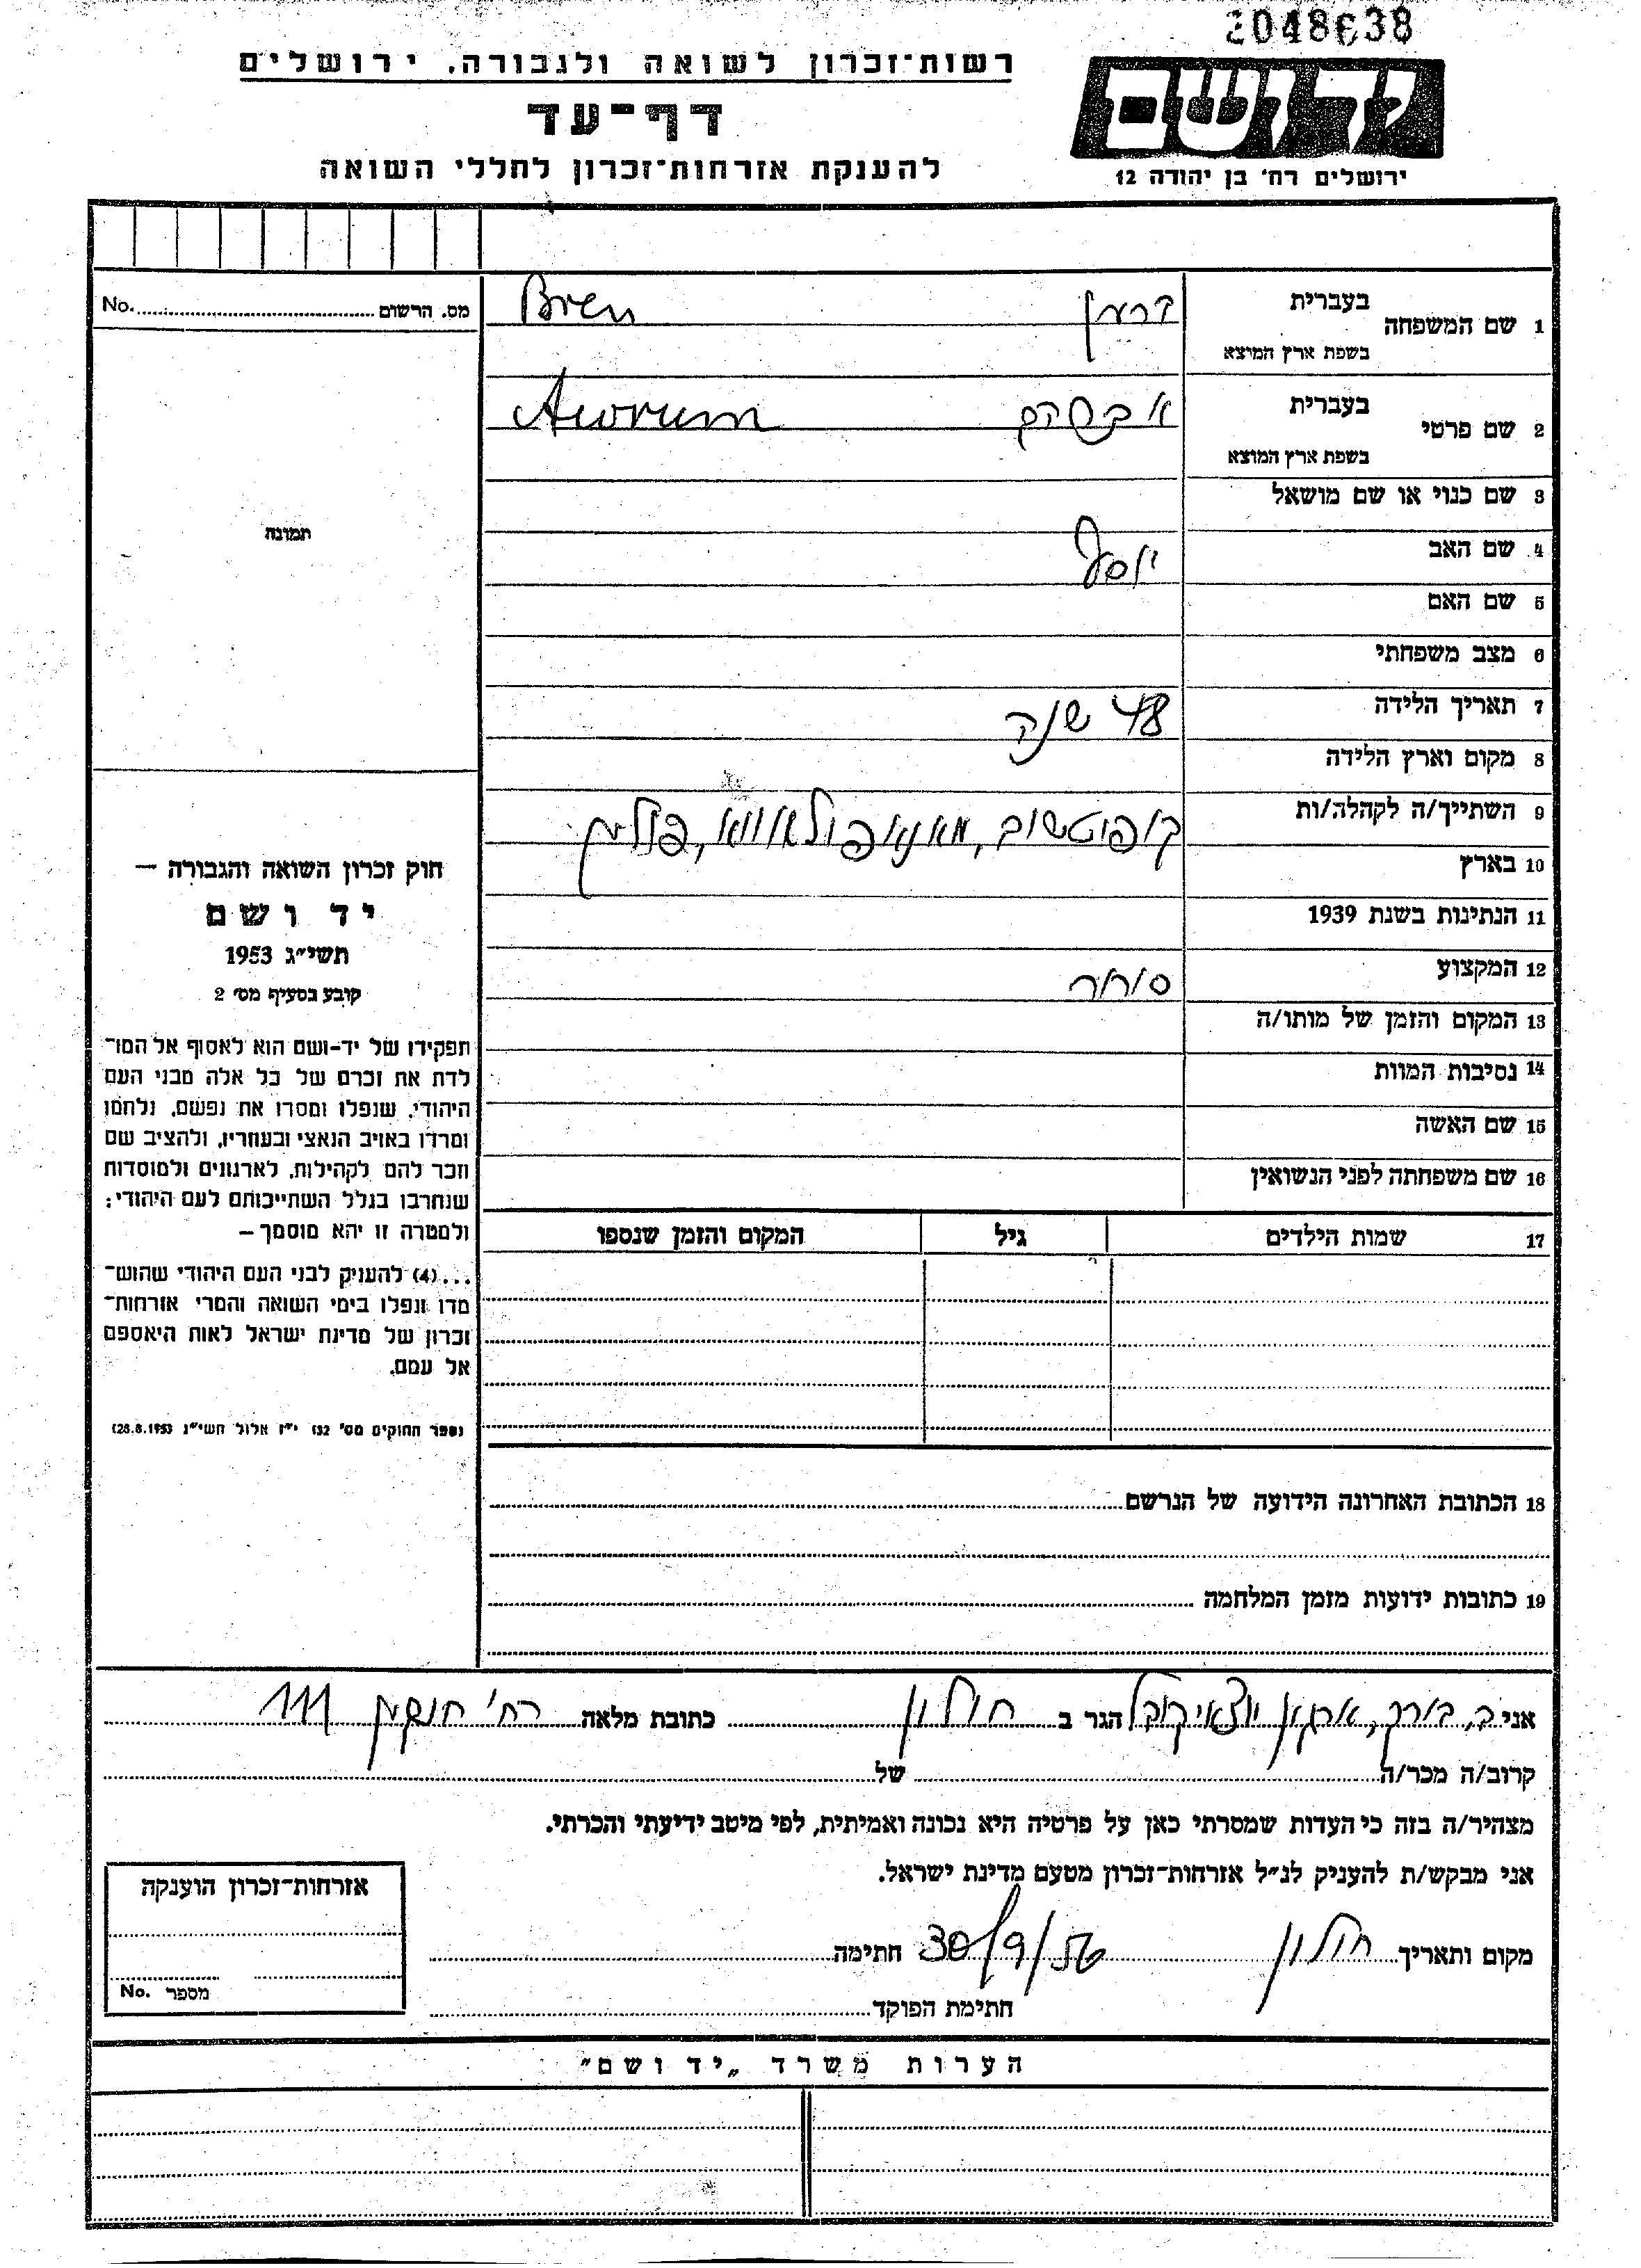 2048638
רשות־זכרון לשואה ולגבורה. ירושלים
דף־עד
להענקת אזרחות־זכרון לחללי השואה
יד ושם
ירושלים רח' בן יהודה 12
1 שם המשפחה
בעברית ברען
בשפת ארץ המוצא Bren
2 שם פרטי
בעברית אברהם
בשפת ארץ המוצא Awrum
3 שם כנוי או שם מושאל
4 שם האב יוסף
5 שם האם
6 מצב משפחתי
7 תאריך הלידה 48 שנה
8 מקום וארץ הלידה
9 השתייך/ה לקהלה/ות
10 בארץ פולין
11 הנתינות בשנת 1939
12 המקצוע סוחר
13 המקום והזמן של מותו/ה
14 נסיבות המוות
15 שם האשה
16 שם משפחתה לפני הנשואין
17 שמות הילדים גיל המקום והזמן שנספו
18 הכתובת האחרונה הידועה של הנרשם
19 כתובות ידועות מזמן המלחמה
No. מס. הרשום
תמונה
חוק זכרון השואה והגבורה —
יד ושם
תשי״ג 1953
קובע בסעיף מס׳ 2
תפקידו של יד-ושם הוא לאסוף אל המו־
לדת את זכרם של כל אלה מבני העם
היהודי, שנפלו ומסרו את נפשם, נלחמו
ומרדו באויב הנאצי ובעוזריו, ולהציב שם
וזכר להם לקהילות, לארגונים ולמוסדות
שנחרבו בגלל השתייכותם לעם היהודי;
ולמטרה זו יהא מוסמך —
...(4) להעניק לבני העם היהודי שהוש־
מדו ונפלו בימי השואה והמרי אזרחות־
זכרון של מדינת ישראל לאות היאספם
אל עמם.
(ספר החוקים מס׳ 132 י״ז אלול תשי״ג 28.8.1953)
אני ב. ברך, הגר ב חולון כתובת מלאה רח׳ חנקין 111
קרוב/ה מכר/ה של
מצהיר/ה בזה כי העדות שמסרתי כאן על פרטיה היא נכונה ואמיתית, לפי מיטב ידיעתי והכרתי.
אני מבקש/ת להעניק לנ״ל אזרחות־זכרון מטעם מדינת ישראל.
מקום ותאריך חולון 30/9/56 חתימה
חתימת הפוקד
אזרחות־זכרון הוענקה
No. מספר
הערות משרד „יד ושם״